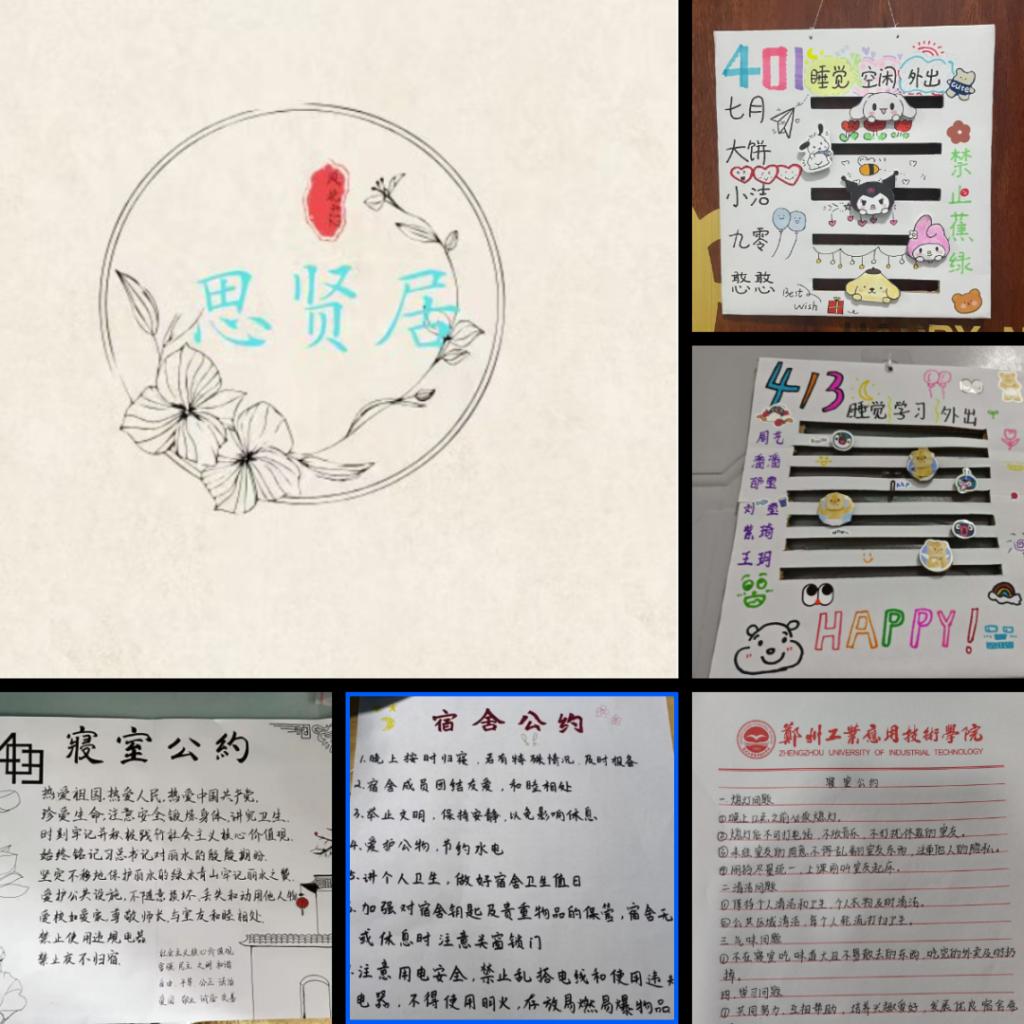 思贤居
401
睡觉 空闲 外出
cute
七月
大饼
小洁
九零
憨憨
Best
wish
禁止蕉绿
413
睡觉 学习 外出
潘潘
刘雯
紫琦
王玥
HAPPY!
寝室公約
热爱祖国,热爱人民,热爱中国共产党.
珍爱生命,注意安全,锻炼身体,讲究卫生.
时刻牢记并积极践行社会主义核心价值观,
始终铭记习总书记对丽水的殷殷期盼.
坚定不移地保护丽水的绿水青山牢记丽水之赞.
爱护公共设施,不随意损坏、丢失和动用他人物
爱校如爱家,尊敬师长,与室友和睦相处.
禁止使用违规电器
禁止夜不归宿.
社会主义核心价值观
富强 民主 文明 和谐
自由 平等 公正 法治
爱国 敬业 诚信 友善
宿舍公约
1.晚上按时归寝,若有特殊情况,及时报备
2.宿舍成员团结友爱,和睦相处
3.举止文明,保持安静,以免影响休息
4.爱护公物,节约水电
5.讲个人卫生,做好宿舍卫生值日
加强对宿舍钥匙及贵重物品的保管,宿舍无
或休息时注意关窗锁门
注意用电安全,禁止乱搭电线和使用违
电器,不得使用明火,存放易燃易爆物品
鄭州工業應用技術學院
ZHENGZHOU UNIVERSITY OF INDUSTRIAL TECHNOLOGY
寝室公约
一.熄灯问题
①晚上12点之前必须熄灯.
②熄灯后不可打电话,不放音乐,不打扰休息的室友.
③未经室友的同意不得乱翻室友东西,注重他人的隐私.
④闹铃尽量统一,上课前叫室友起床.
二.清洁问题
①保持个人清洁和卫生,个人衣物及时清洗.
②公共区域清洁,每个人轮流打扫卫生.
三.气味问题
①不在寝室吃味道大且不易散去的东西,吃完的外卖及时扔
掉.
四.学习问题
①共同努力,互相帮助,培养兴趣爱好,发展优良宿舍